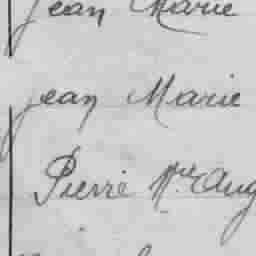 Jean Marie
Jean Marie
Pierre Mie Aug